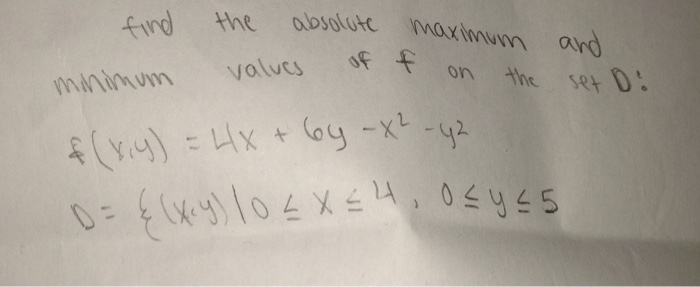 find the absolute maximum and
minimum values of f on the set D:
f(x,y) = 4x + 6y - x² - y²
D = {(x,y) | 0 ≤ x ≤ 4, 0 ≤ y ≤ 5